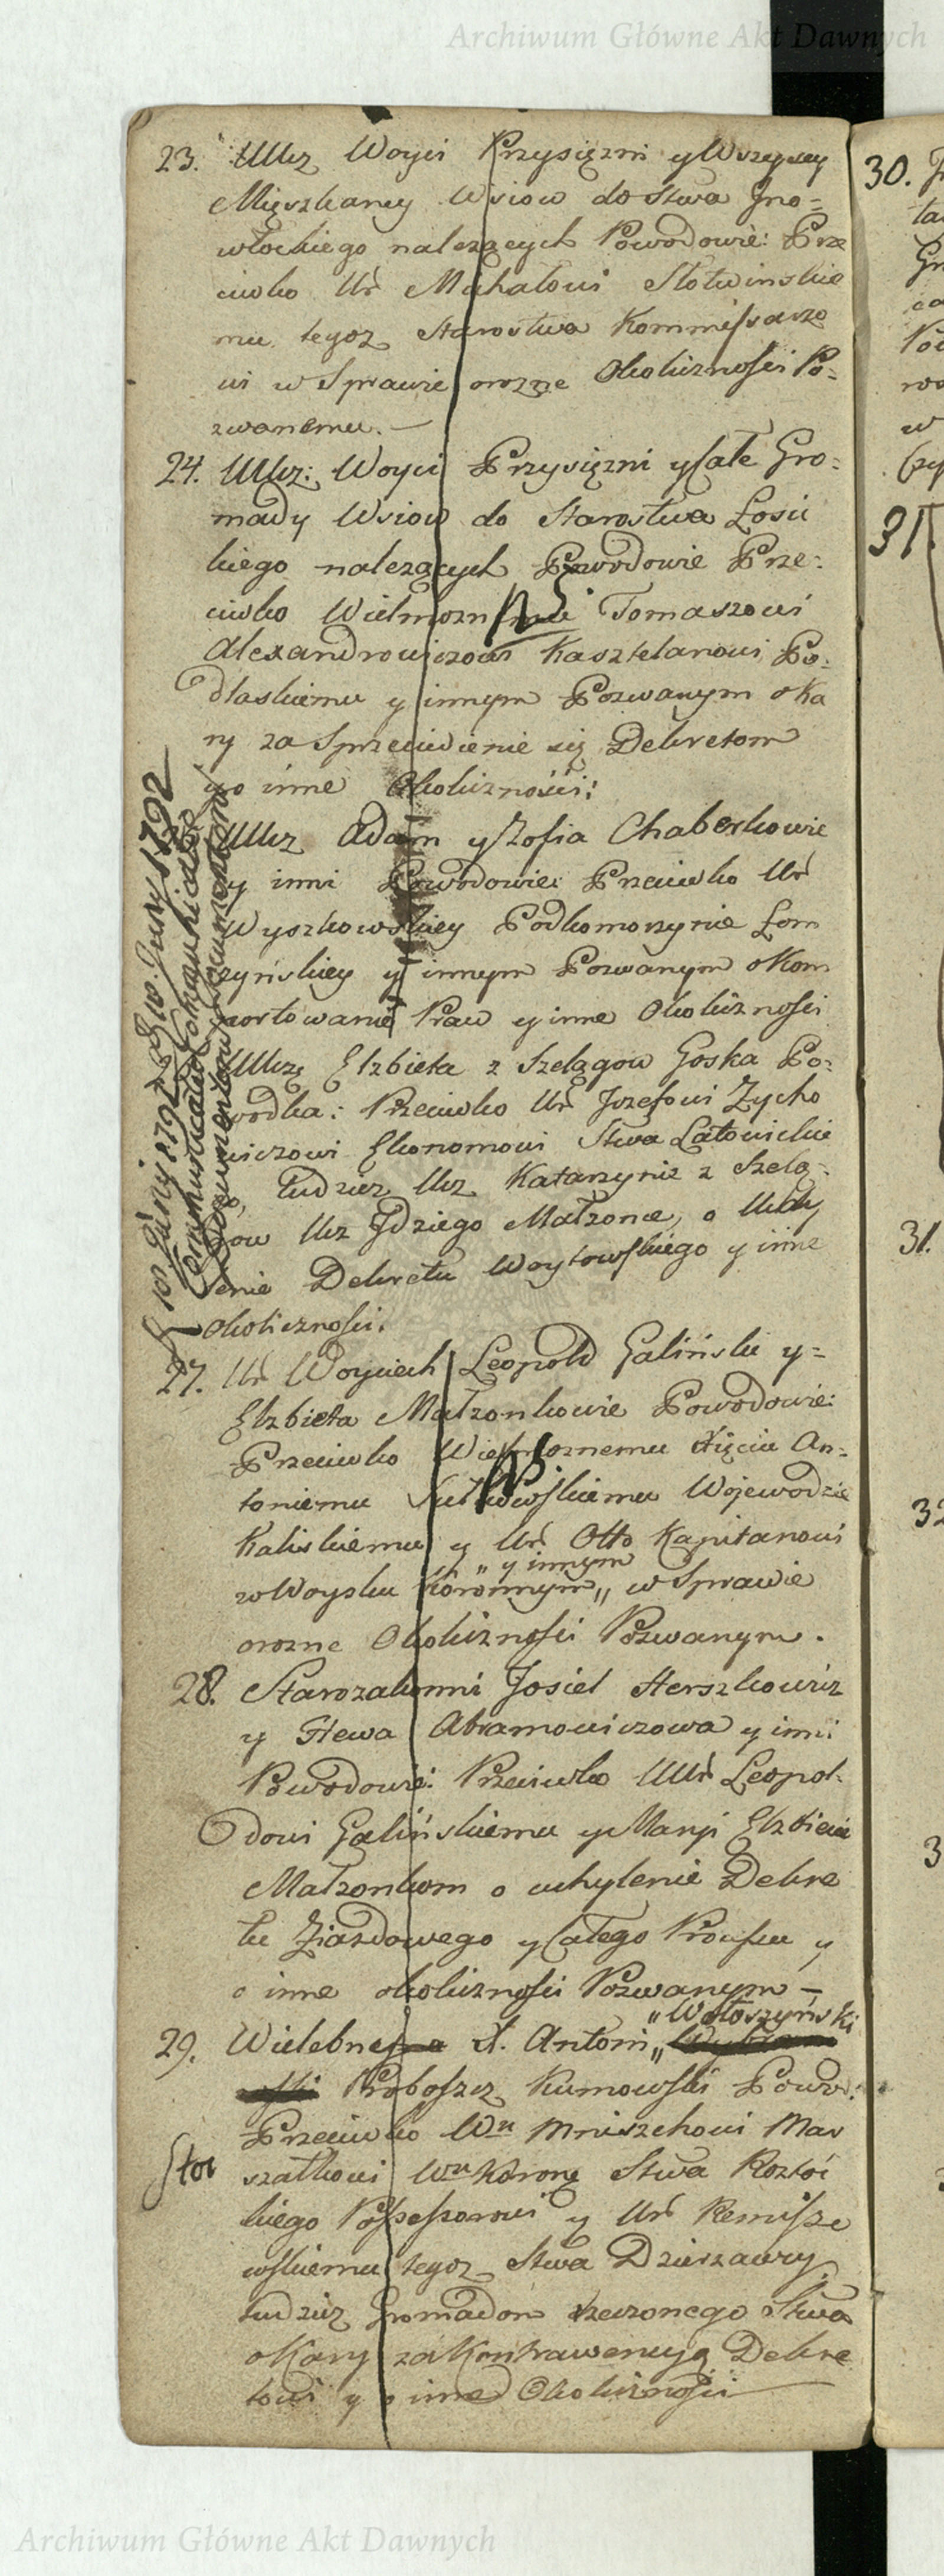 Archiwum Główne Akt Dawnych
23. UUcz Woyci Przysięzni y Wszyscy
Mięszkancy Wsiow do Stwa Jno=
włockiego nalezących Powodowie: Prze
ciwko Ur Michałowi Słotwinskie
mu tegoz Starostwa Kommissarzo
wi w Sprawie orozne Okolicznosci Po=
zwanemu. —
24. UUcz: Woyci Przysięzni y Całe Gro=
mady Wsiow do Starostwa Łosic
kiego nalezących Powodowie Prze:
ciwko Wielmoznemu Tomaszowi
Alexandrowiczowi Kasztelanowi Po=
dlaskiemu y innym Pozwanym o Ka
ry za Sprzeciwienie się Dekretom
y o inne Okoliczności:
UUcz Adam y Zofia Chaberkowie
y inni Powodowie: Przeciwko Ur
Wyszkowskiey Podkomorzynie Łom
zyńskiey y innym Pozwanym o Kom
portowanie Praw y inne Okoliczności
UUcz Elzbieta z Szelągow Goska Po=
wodka: Przeciwko Ur Jozefowi Zycho
wiczowi Ekonomowi Stwa Latowickie
go, Tudziez Ucz Katarzynie z Szelą=
gow Ucz Jdziego Małzonce, o Uchy
lenie Dekretu Woytowskiego y inne
okoliczności.
10 Junij 1792
27. Ur Woyciech Leopold Galiński y=
Elzbieta Małzonkowie Powodowie:
Przeciwko Wielmoznemu Xięciu An=
toniemu Sułkowskiemu Wojewodzie
Kaliskiemu y Ur Otto Kapitanowi
„ y innym
w Woysku Koronnym „ w Sprawie
orozne Okoliczności Pozwanym.
28. Starozakonni Josiel Herszkowicz
y Hewa Abramowiczowa y inni
Powodowie: Przeciwko UUr Leopol=
dowi Galińskiemu y Maryi Elzbiecie
Małzonkom o uchylenie Dekre
tu Zjazdowego y Całego Processu y
o inne okoliczności Pozwanym —
„Wołoszyński
29. Wielebny X. Antoni „
Proboszcz Kumowski Powod:
Przeciwko Wu Mniszchowi Mar
szałkowi Wu Korone Stwa Roztoc
kiego Possessorowi y Ur Remisze
wskiemu tegoz Stwa Dzierzawcy
tudziez Gromadom rzeczonego Stwa
o Kary za Kontrawencyą Dekre
towi y o inne Okoliczności
30.
31.
31.
32
3
Archiwum Główne Akt Dawnych